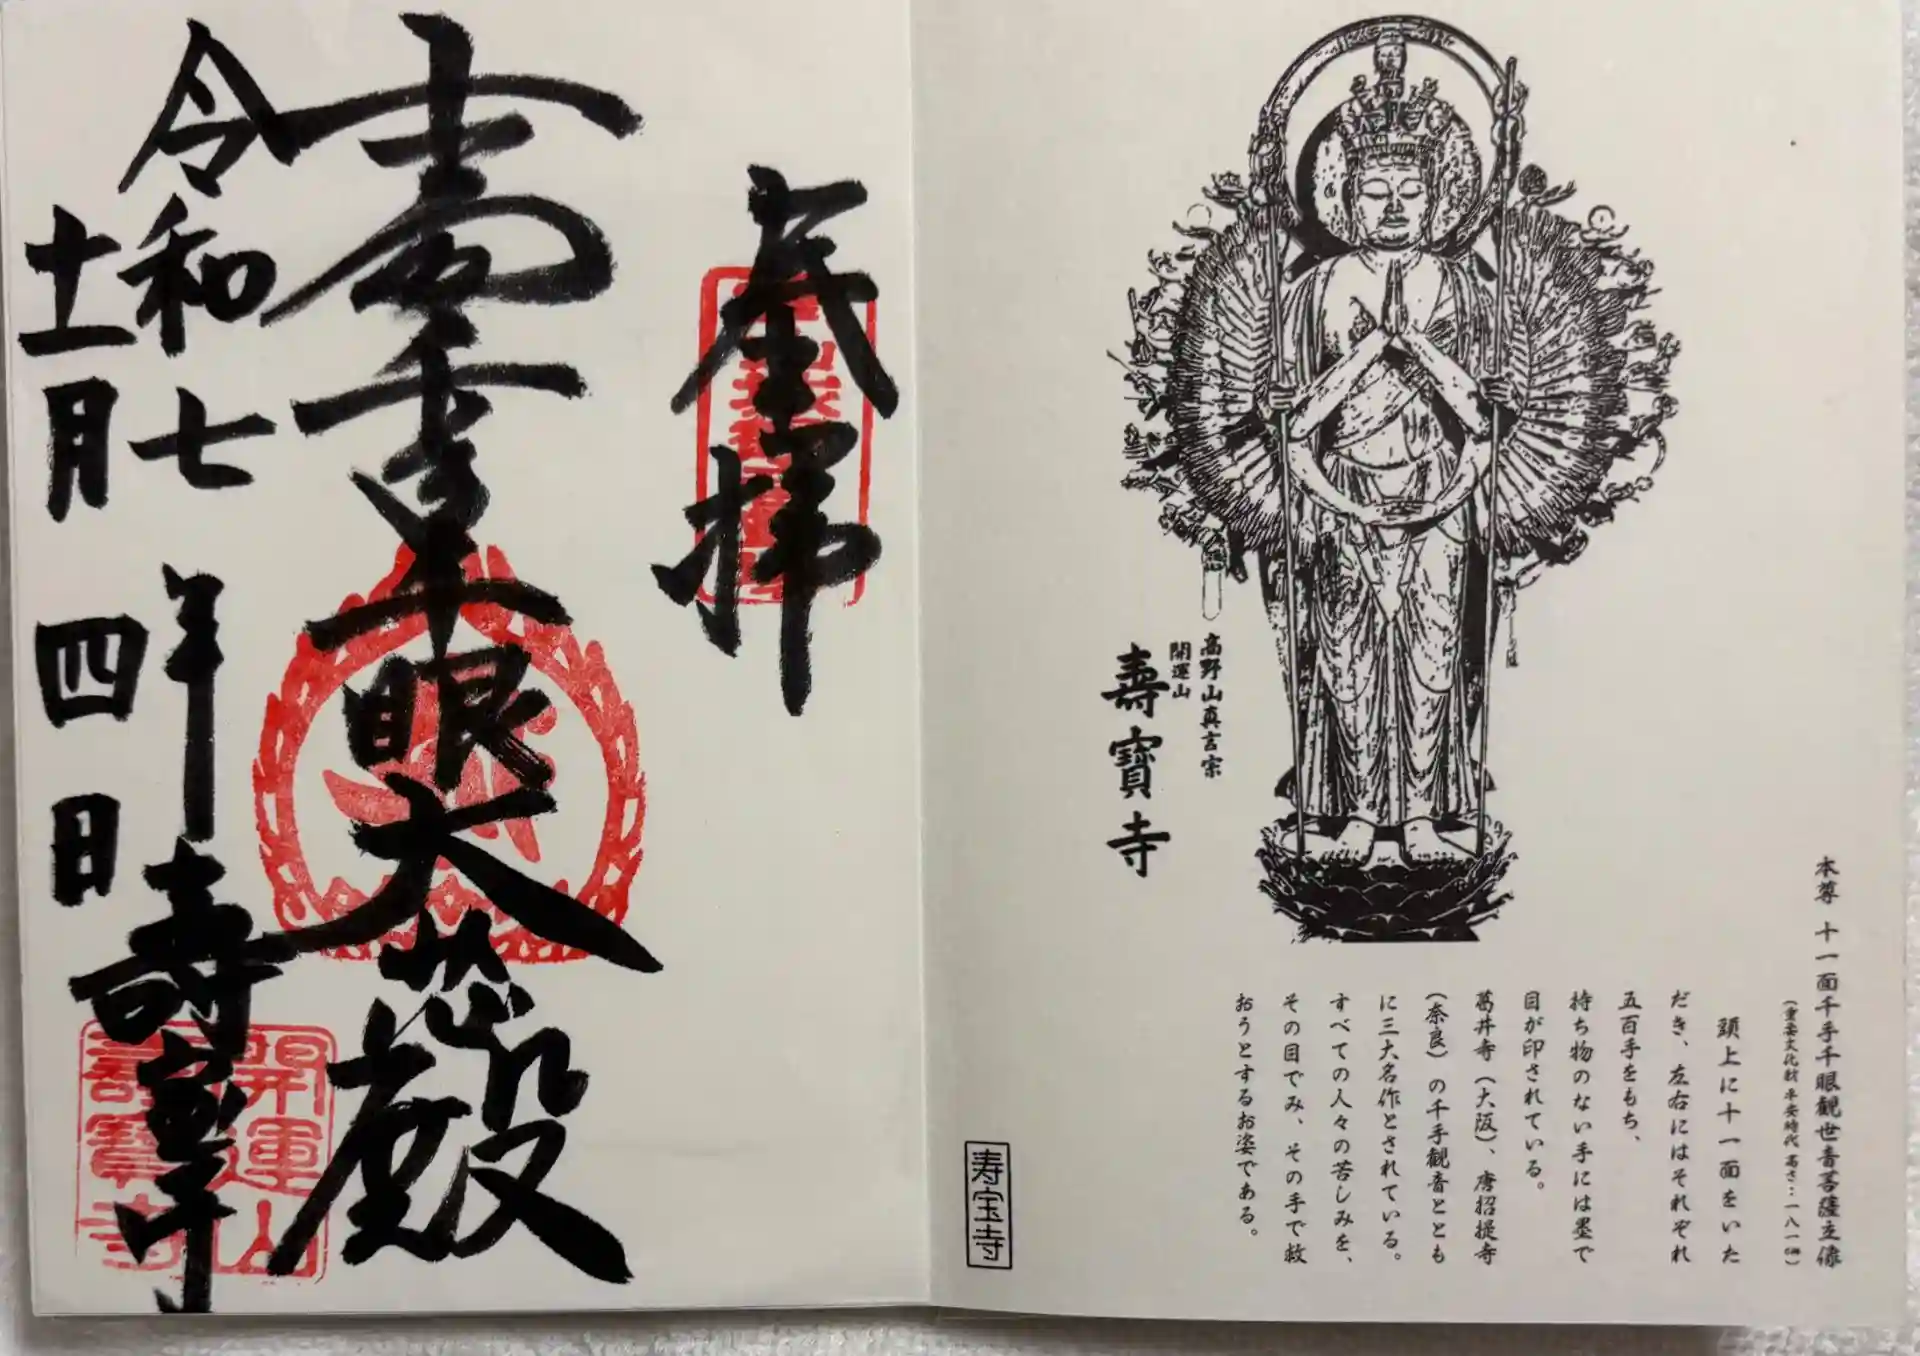 本尊 十一面千手千眼観世音菩薩立像
(重要文化財 平安時代 高さ:一八一㎝)
頭上に十一面をいた
だき、左右にはそれぞれ
五百手をもち、
持ち物のない手には墨で
目が印されている。
葛井寺(大阪)、唐招提寺
(奈良)の千手観音ととも
に三大名作とされている。
すべての人々の苦しみを、
その目でみ、その手で救
おうとするお姿である。
高野山真言宗
開運山
壽寶寺
寿宝寺
奉拝
千手千眼大悲殿
令和七年
十一月四日
壽寶寺
開運山
壽寶寺